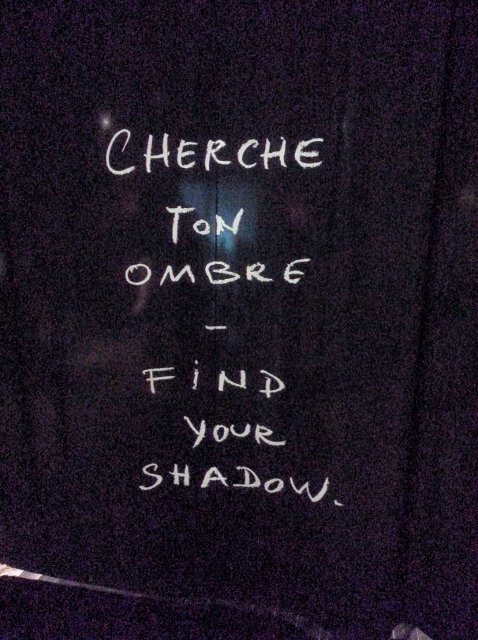 CHERCHE
TON
OMBRE
–
FiND
YOUR
SHADOW.